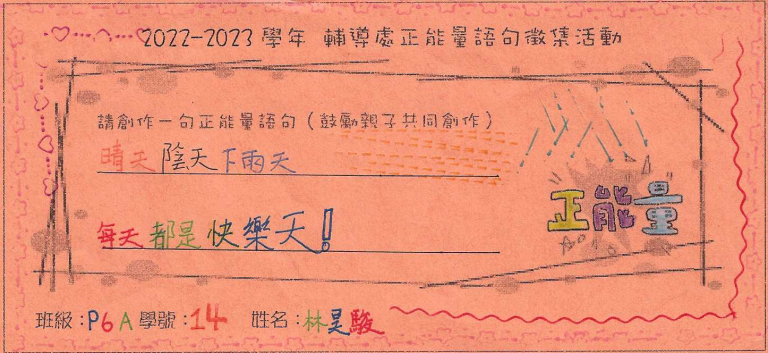 2022-2023學年 輔導處正能量語句徵集活動
請創作一句正能量語句(鼓勵親子共同創作)
晴天陰天下雨天
每天都是快樂天!
正能量
班級:P6A 學號:14 姓名:林昊駿